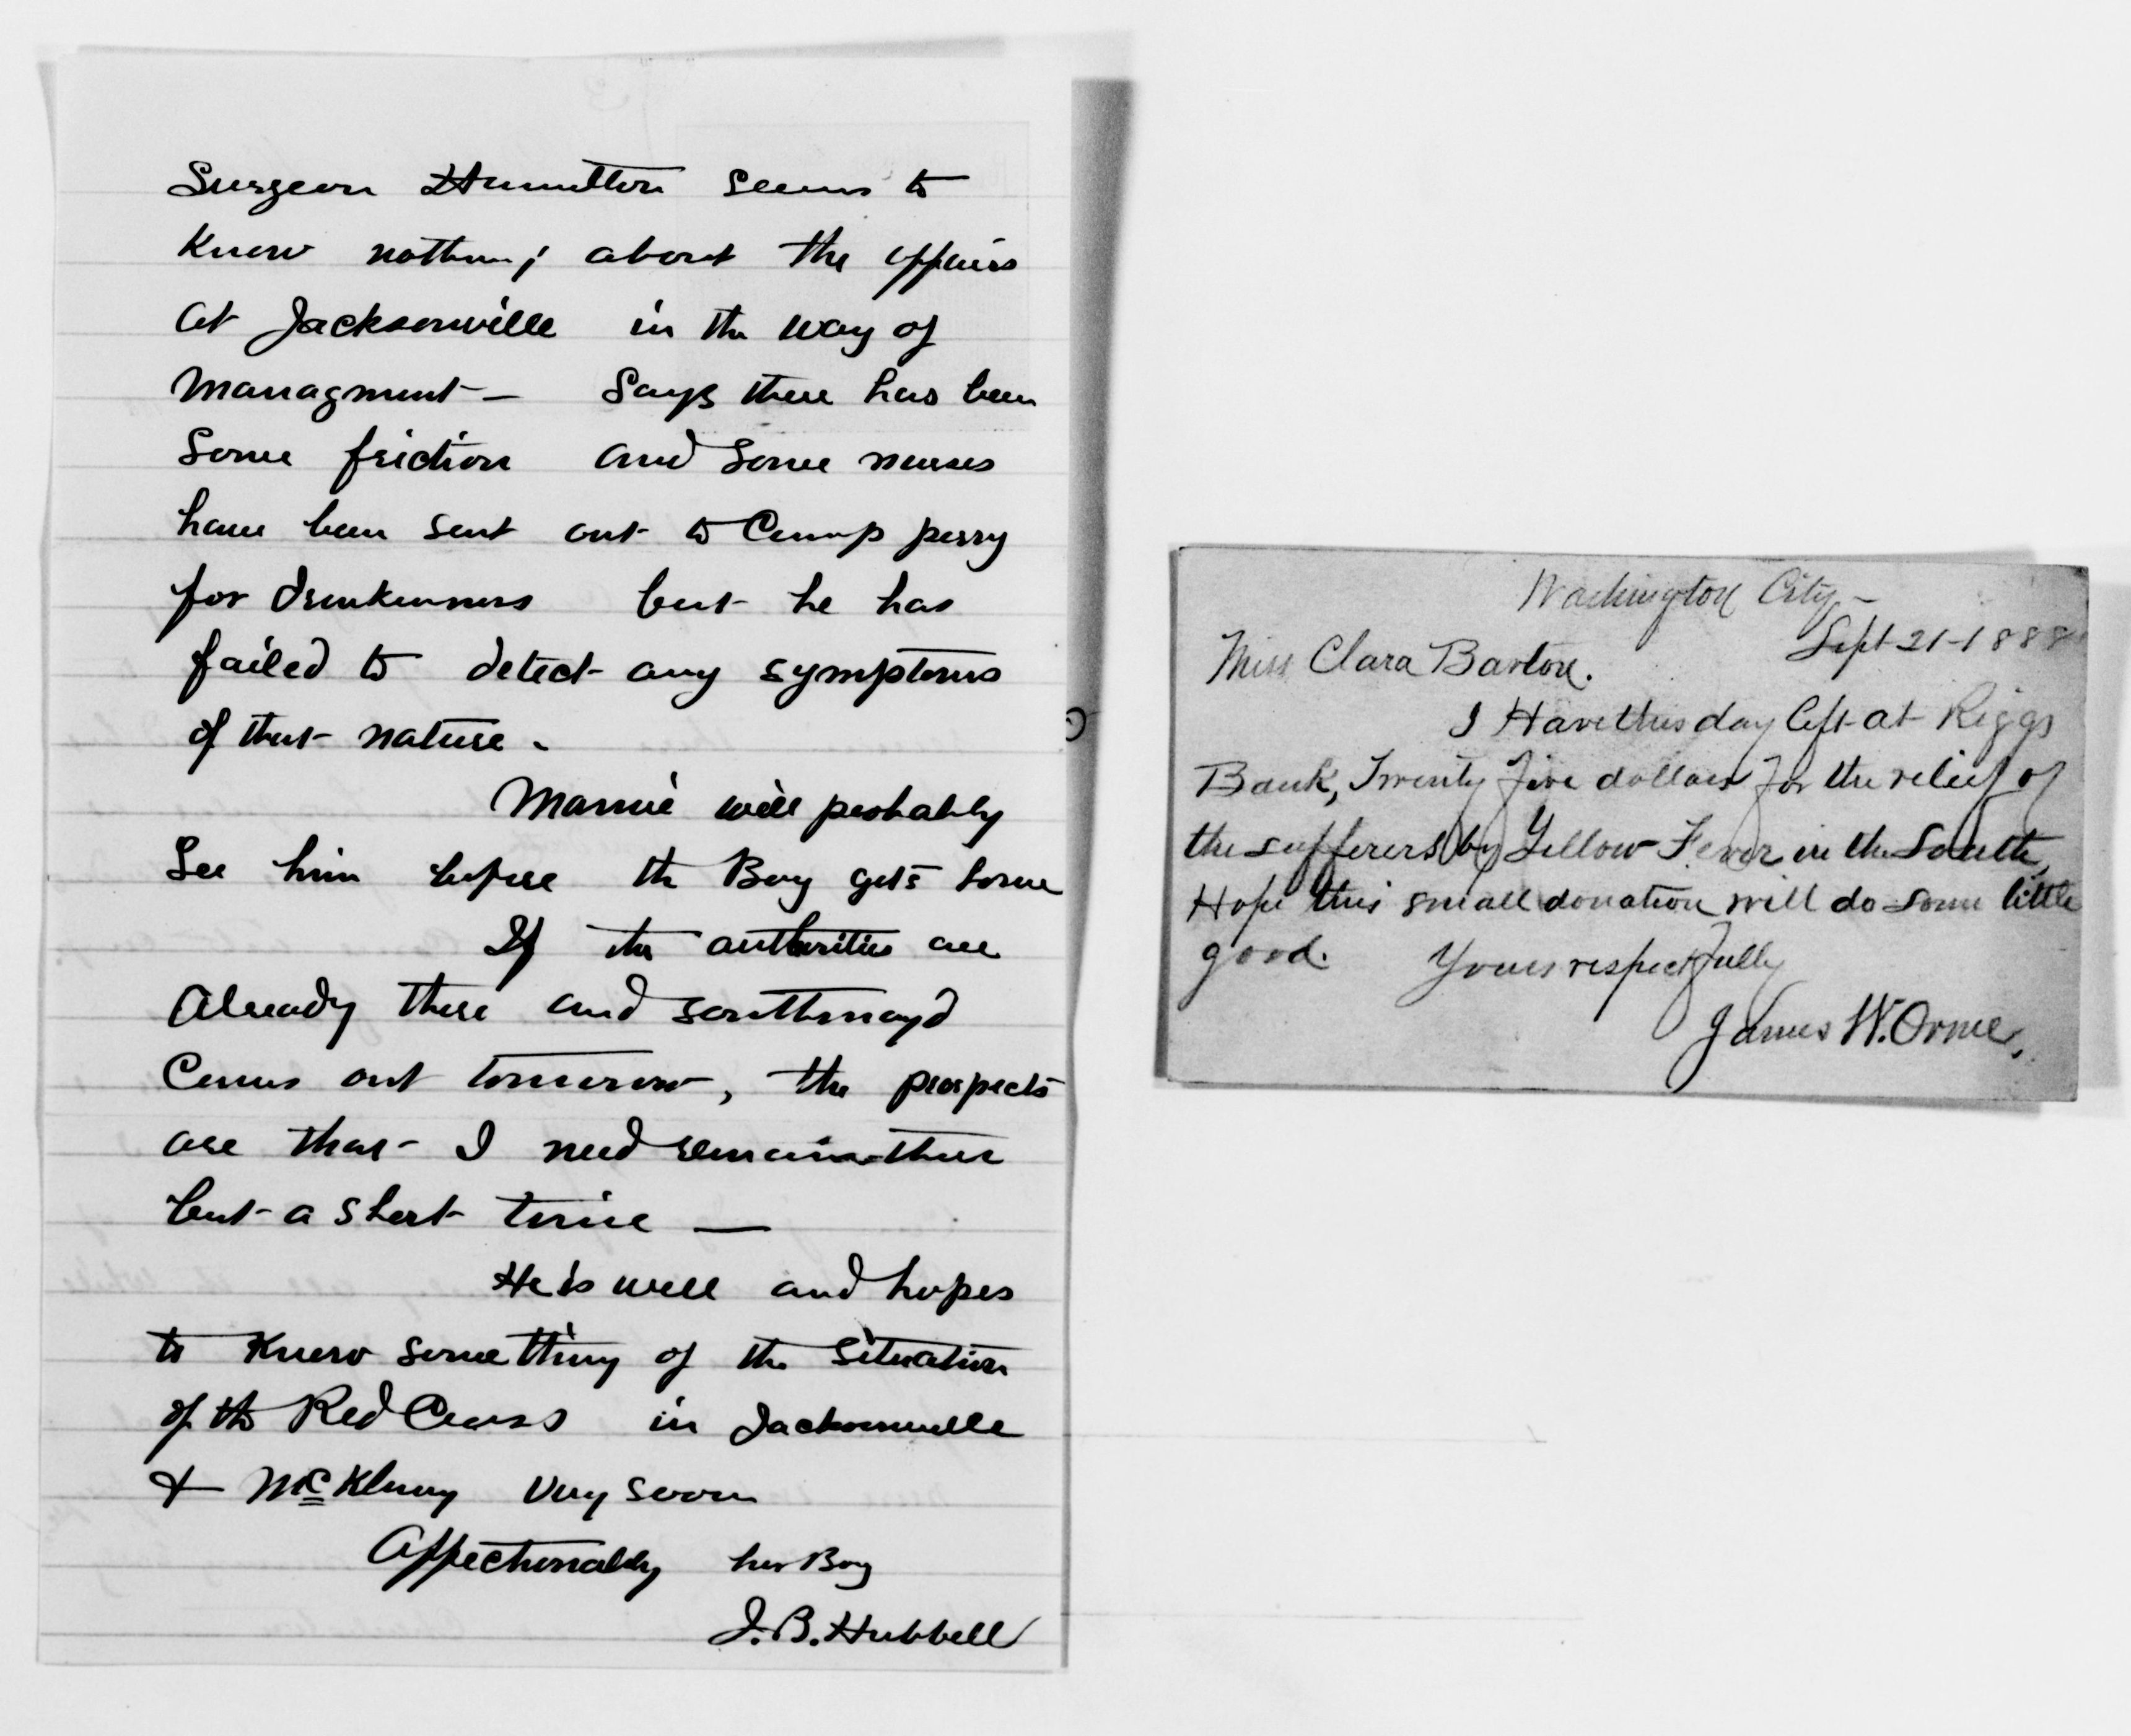 Surgeon Hamilton seems to
Know nothing about the affairs
at Jacksonville in the way of
Managment — Says there has been
Some friction and Some nurses
have been sent out to Camp perry
for drunkenness but he has
failed to detect any symptoms
of that nature -
Mamie will probably
See him before the Boy gets home
If the authorities are
Already there and southmayd
Comes out tomorrow, the prospects
are that I need remain there
but a short time —
He is well and hopes
to Know something of the situation
of the Red Cross in Jacksonville
& McKlenny very soon
Affectionately her Boy
J. B. Hubbell
Washington City -
Sept 21-1888
Miss Clara Barton.
I Have this day left at Riggs
Bank, Twenty five dollars for the relief of
the sufferers by Yellow Fever in the South,
Hope this small donation will do some little
good. Yours respectfully
James W. Orme,